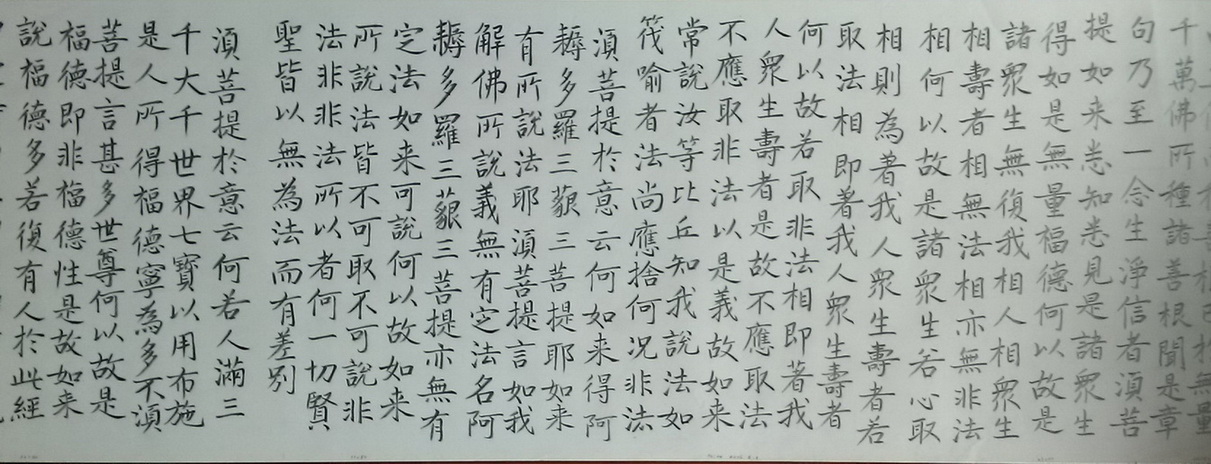 於無量
千萬佛所種諸善根聞是章
句乃至一念生淨信者須菩
提如来悉知悉見是諸衆生
得如是無量福德何以故是
諸衆生無復我相人相衆生
相壽者相無法相亦無非法
相何以故是諸衆生若心取
相則為著我人衆生壽者若
取法相即著我人衆生壽者
何以故若取非法相即著我
人衆生壽者是故不應取法
不應取非法以是義故如来
常說汝等比丘知我說法如
筏喻者法尚應捨何況非法
須菩提於意云何如来得阿
耨多羅三藐三菩提耶如来
有所說法耶須菩提言如我
解佛所說義無有定法名阿
耨多羅三藐三菩提亦無有
定法如来可說何以故如来
所說法皆不可取不可說非
法非非法所以者何一切賢
聖皆以無為法而有差别
須菩提於意云何若人滿三
千大千世界七寶以用布施
是人所得福德寧為多不須
菩提言甚多世尊何以故是
福德即非福德性是故如来
說福德多若復有人於此經